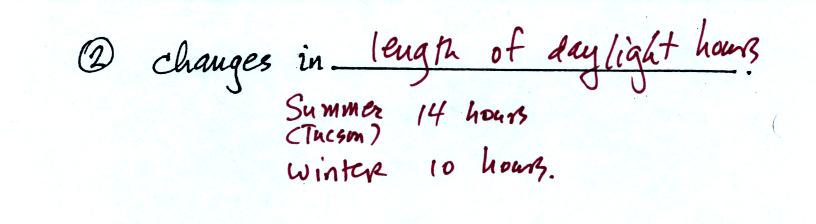 ② changes in length of daylight hours.
Summer 14 hours
(Tucson)
Winter 10 hours.